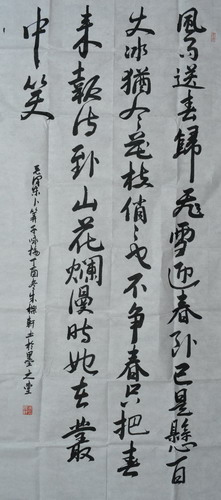 風雨送春歸飛雪迎春到已是懸百
丈冰猶有花枝俏俏也不争春只把春
来報待到山花爛漫時她在叢
中笑
毛澤東卜算子詠梅丁酉冬朱於墨之堂